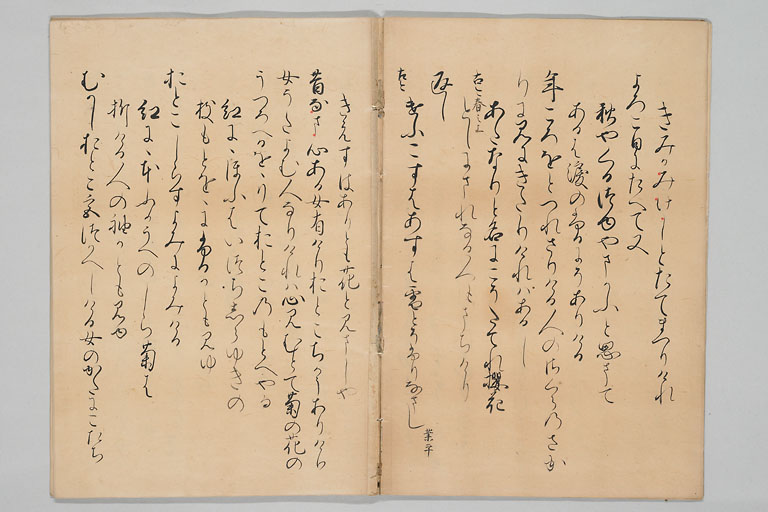 きみかみけしとたてまつりけれ
よろこひにたへて又
秋やくるつゆやまかふと思まて
あるは涙のふるにそありける
年ころをとつれさりける人のさくらのさか
りに見にきたりけれはあるし
あたなりと名にこそたてれ櫻花
古今春上
としにまれなる人もまちけり
返し
古今
けふこすはあすは雪とそふりなまし
業平
きえすはありとも花と見ましや
昔なま心ある女有けりおとこちかうありけり
女うたよむ人なりけれは心見むとて菊の花の
うつろへるをゝりておとこのもとへやる
紅にゝほふはいつらしらゆきの
枝もとをゝにふるかとも見ゆ
おとこしらすよみによみける
紅にゝほふかうへのしら菊は
折ける人の袖かとも見ゆ
むかしおとこ宮つかへしける女のかたにこたち